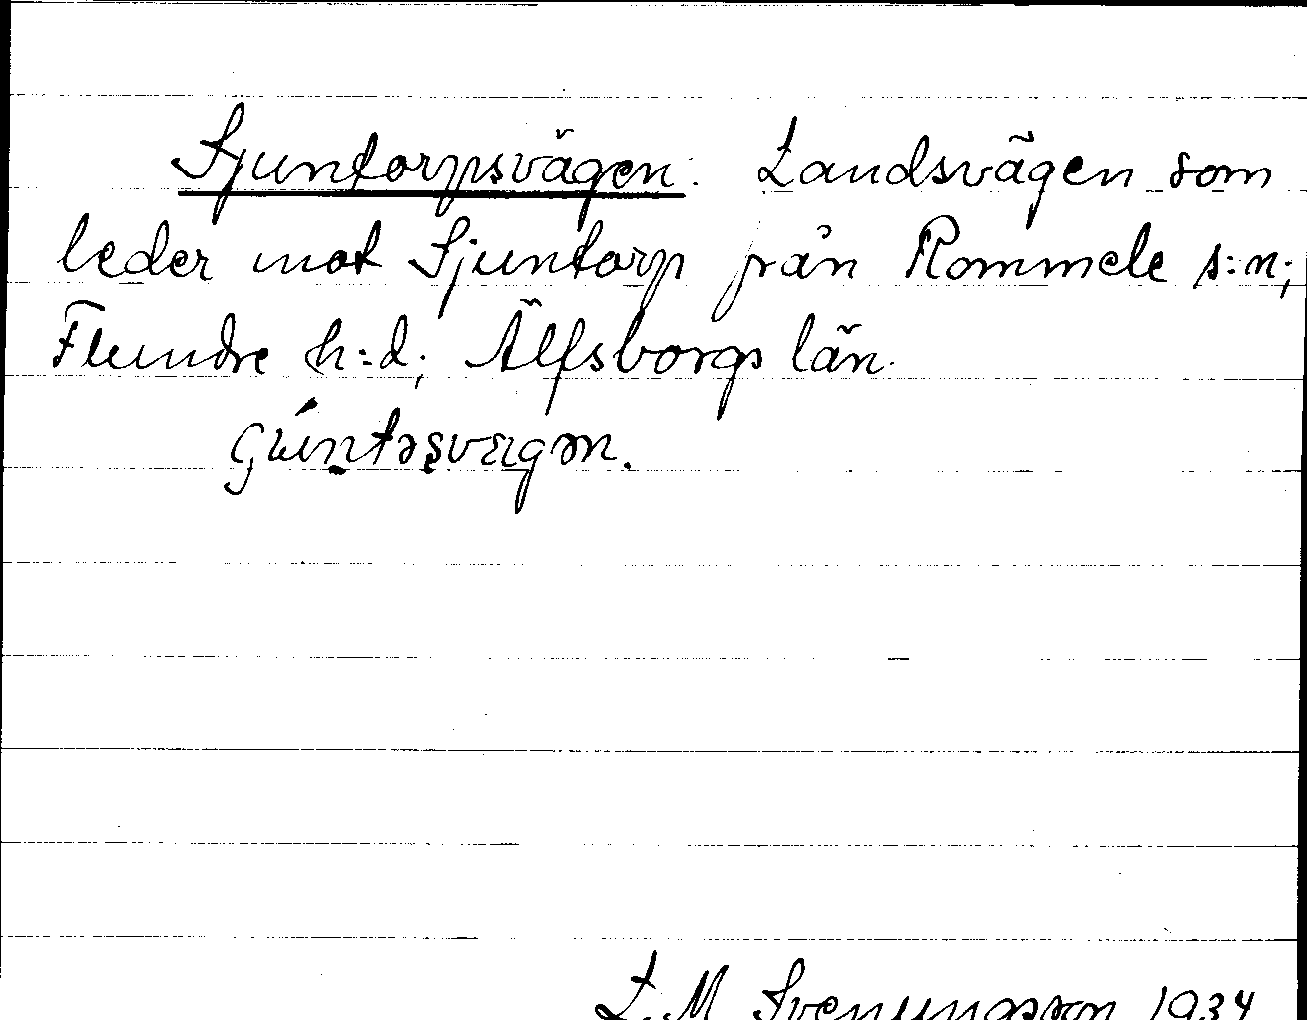 Sjuntorpsvägen. Landsvägen som
leder mot Sjuntorp från Rommele s:n;
Flundre h:d; Älfsborgs län.
L.M Svenungsson 1934